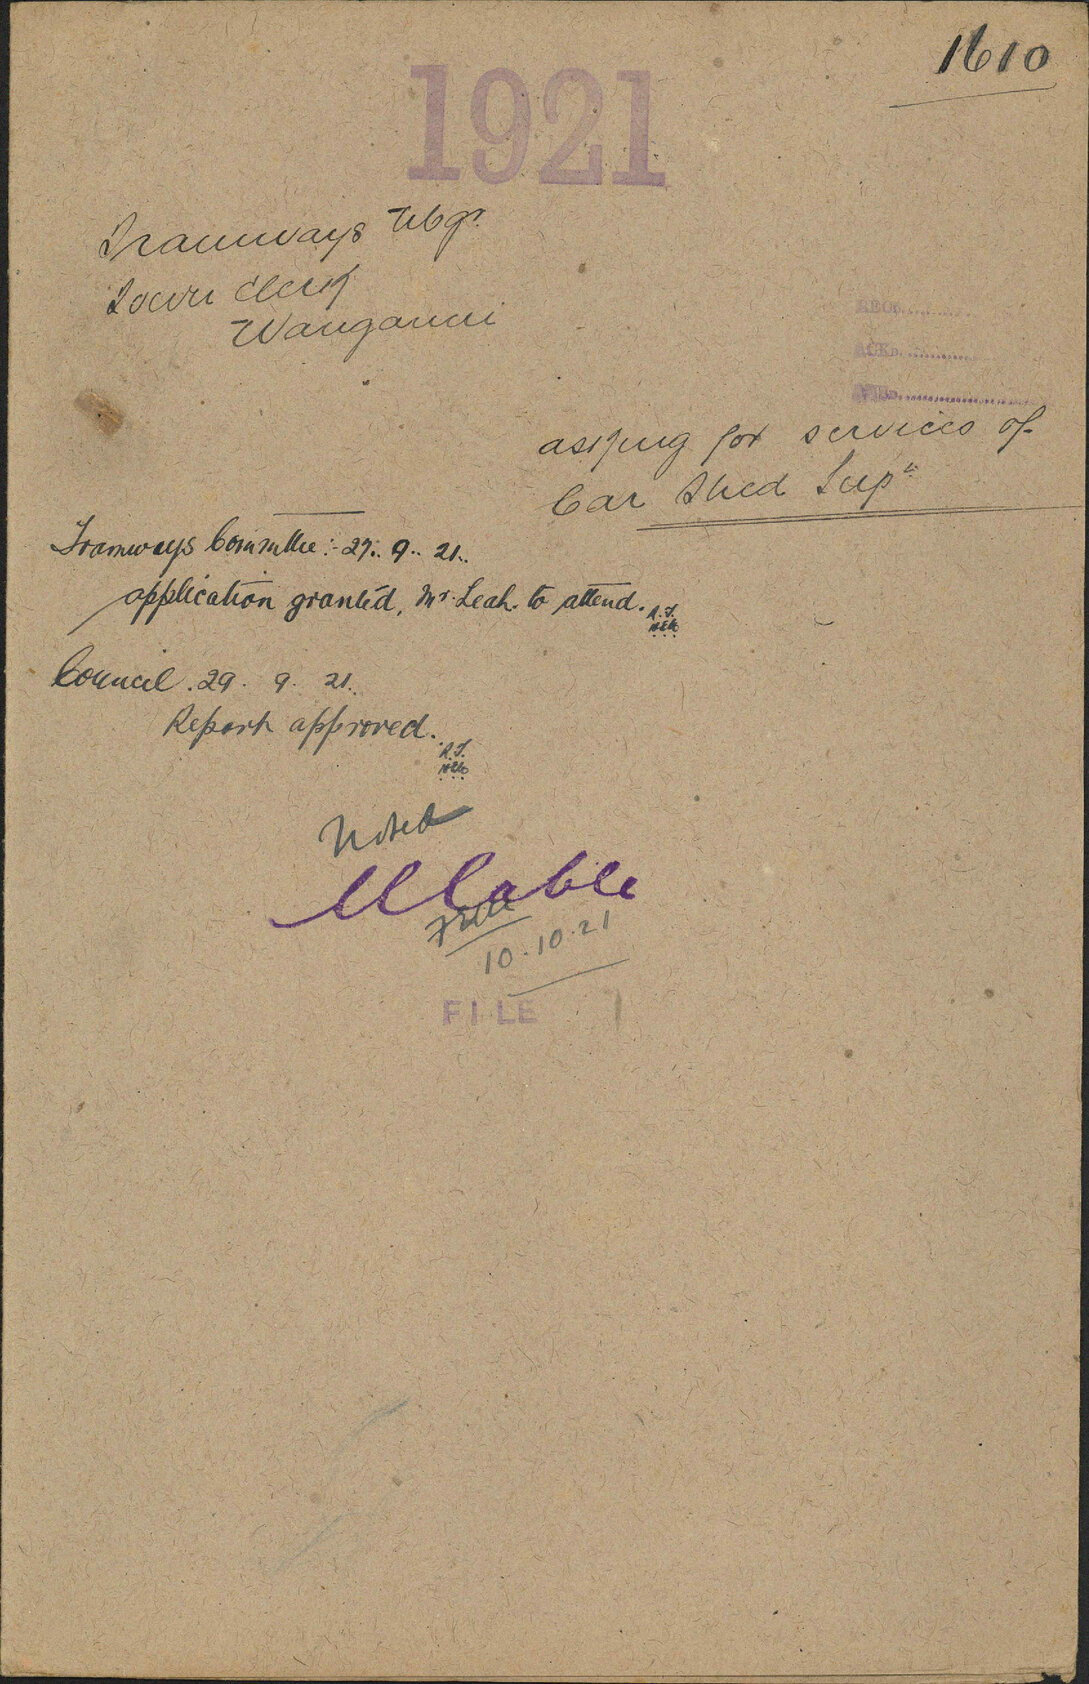 1610
1921
Tramways Mgr.
Town Clerk
Wanganui
RECD..............
ACKD..............
asking for services of
Car Shed Supt
Tramways Committee:- 27. 9. 21.
application granted, Mr. Leah. to attend.
Council. 29. 9. 21.
Report approved.
Noted
MCable
10.10.21
FILE